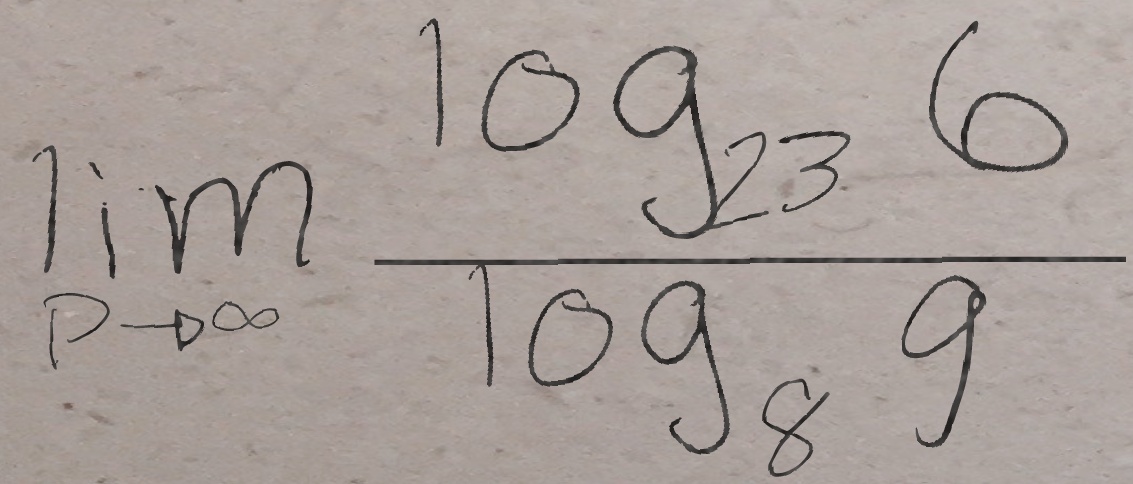 \lim_{p \to \infty} \frac{\log_{23} 6}{\log_{8} 9}